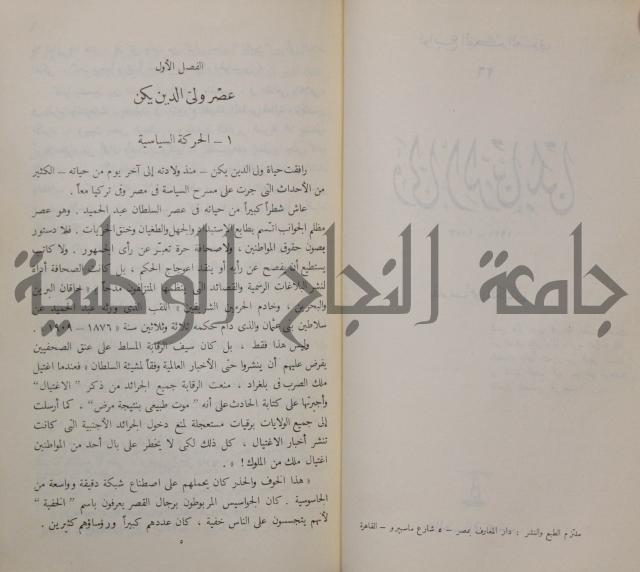 ملتزم الطبع والنشر : دار المعارف بمصر – ٥ شارع ماسبيرو – القاهرة
الفصل الأول
عصر ولى الدين يكن
١ – الحركة السياسية
رافقت حياة ولى الدين يكن – منذ ولادته إلى آخر يوم من حياته – الكثير
من الأحداث التى جرت على مسرح السياسة فى مصر وفى تركيا معاً .
عاش شطراً كبيراً من حياته فى عصر السلطان عبد الحميد . وهو عصر
مظلم الجوانب اتسم بطابع الاستبداد والجهل والطغيان وخنق الحريات . فلا دستور
يصون حقوق المواطنين ، ولا صحافة حرة تعبّر عن رأى الجمهور . ولا كاتب
يستطيع أن يفصح عن رأيه أو ينقد اعوجاج الحكم ، بل كانت الصحافة أداة
لنشر البلاغات الرسمية والقصائد التى ينظمها المتزلفون مدحاً « لخاقان البرين
والبحرين ، وخادم الحرمين الشريفين » اللقب الذى ورثه عبد الحميد عن
سلاطين بنى عثمان والذى دام حكمه ثلاثة وثلاثين سنة « ١٨٧٦ – ١٩٠٨ » .
وليس هذا فقط ، بل كان سيف الرقابة المسلط على عنق الصحفيين
يفرض عليهم أن ينشروا حتى الأخبار العالمية وفقاً لمشيئة السلطان « فعندما اغتيل
ملك الصرب فى بلغراد ، منعت الرقابة جميع الجرائد من ذكر " الاغتيال "
وأجبرتها على كتابة الحادث على أنه " موت طبيعى بنتيجة مرض " ، كما أرسلت
إلى جميع الولايات برقيات مستعجلة لمنع دخول الجرائد الأجنبية التى كانت
تنشر أخبار الاغتيال ، كل ذلك لكى لا يخطر على بال أحد من المواطنين
اغتيال ملك من الملوك ! » .
« هذا الخوف والحذر كان يحملهم على اصطناع شبكة دقيقة وواسعة من
الجاسوسية . كان الجواسيس المربوطون برجال القصر يعرفون باسم " الخفية "
لأنهم يتجسسون على الناس خفية ، كان عددهم كبيراً ورؤساؤهم كثيرين .
٥
جامعة النجاح الوطنية